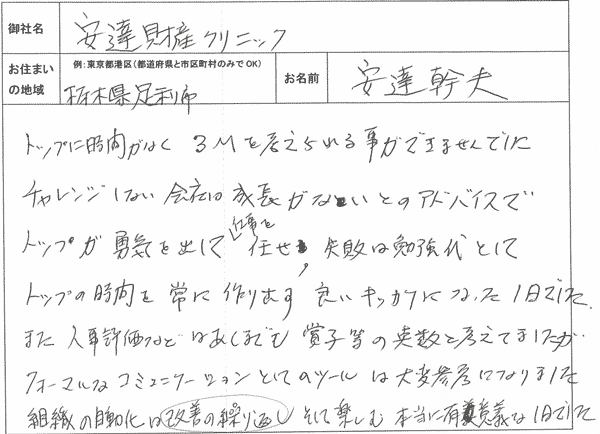 御社名 安達財産クリニック
お住まいの地域 例:東京都港区(都道府県と市区町村のみでOK) 栃木県足利市 お名前 安達幹夫
トップに時間がなく 3Mを考えられる事ができませんでした
チャレンジしない会社は成長がないとのアドバイスで
トップが勇気を出して仕事を任せ、失敗は勉強代として
トップの時間を常に作り出す良いキッカケになった1日でした
また人事評価などはあくまでも賞子等の英数と考えてましたが
フォーマルなコミュニケーションとしてのツールは大変参考になりました
組織の自動化は改善の繰り返し そして楽しむ 本当に有意義な1日でした